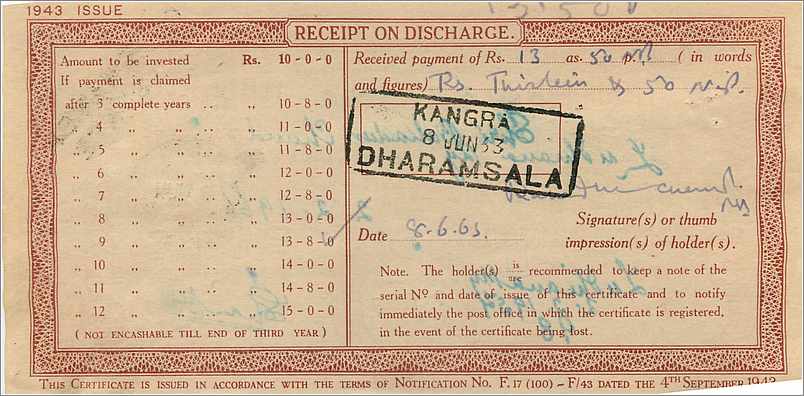 1943 ISSUE
13/50
RECEIPT ON DISCHARGE.
Amount to be invested Rs. 10-0-0
If payment is claimed
after 3 complete years .. ,, 10-8-0
,, 4 ,, ,, .. ,, 11-0-0
,, 5 ,, ,, .. ,, 11-8-0
,, 6 ,, ,, .. ,, 12-0-0
,, 7 ,, ,, .. ,, 12-8-0
,, 8 ,, ,, .. ,, 13-0-0
,, 9 ,, ,, .. ,, 13-8-0
,, 10 ,, ,, .. ,, 14-0-0
,, 11 ,, ,, .. ,, 14-8-0
,, 12 ,, ,, .. ,, 15-0-0
(NOT ENCASHABLE TILL END OF THIRD YEAR)
Received payment of Rs. 13 as. 50 p. (in words
and figures) Rs. Thirteen & 50 
KANGRA
8 JUN 63
DHARAMSALA
Date 8.6.63.
Signature(s) or thumb
impression(s) of holder(s).
Note. The holder(s) is/are recommended to keep a note of the
serial No and date of issue of this certificate and to notify
immediately the post office in which the certificate is registered,
in the event of the certificate being lost.
THIS CERTIFICATE IS ISSUED IN ACCORDANCE WITH THE TERMS OF NOTIFICATION No. F.17 (100) – F/43 DATED THE 4TH SEPTEMBER 1943